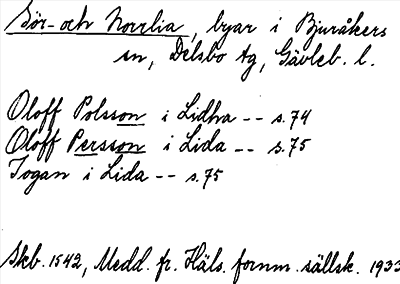 Sör- och Norrlia, byar i Bjuråkers
sn, Delsbo tg, Gävleb. l.
Oloff Polsson i Lidha -- s. 74
Oloff Persson i Lida -- s. 75
Jogan i Lida -- s. 75
Skb. 1542, Medd. fr. Häls. fornm. sällsk. 1933